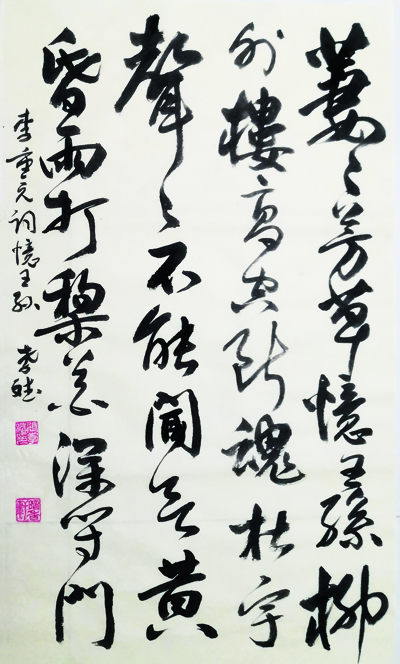 萋々芳草憶王孫柳
外樓高空断魂杜宇
聲々不能聞欲黄
昏雨打棃花深閉門
李重元詞憶王孫